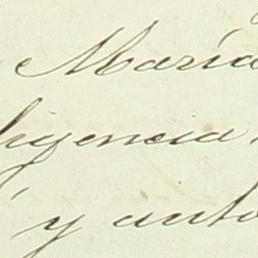 María
ligencia
y auto